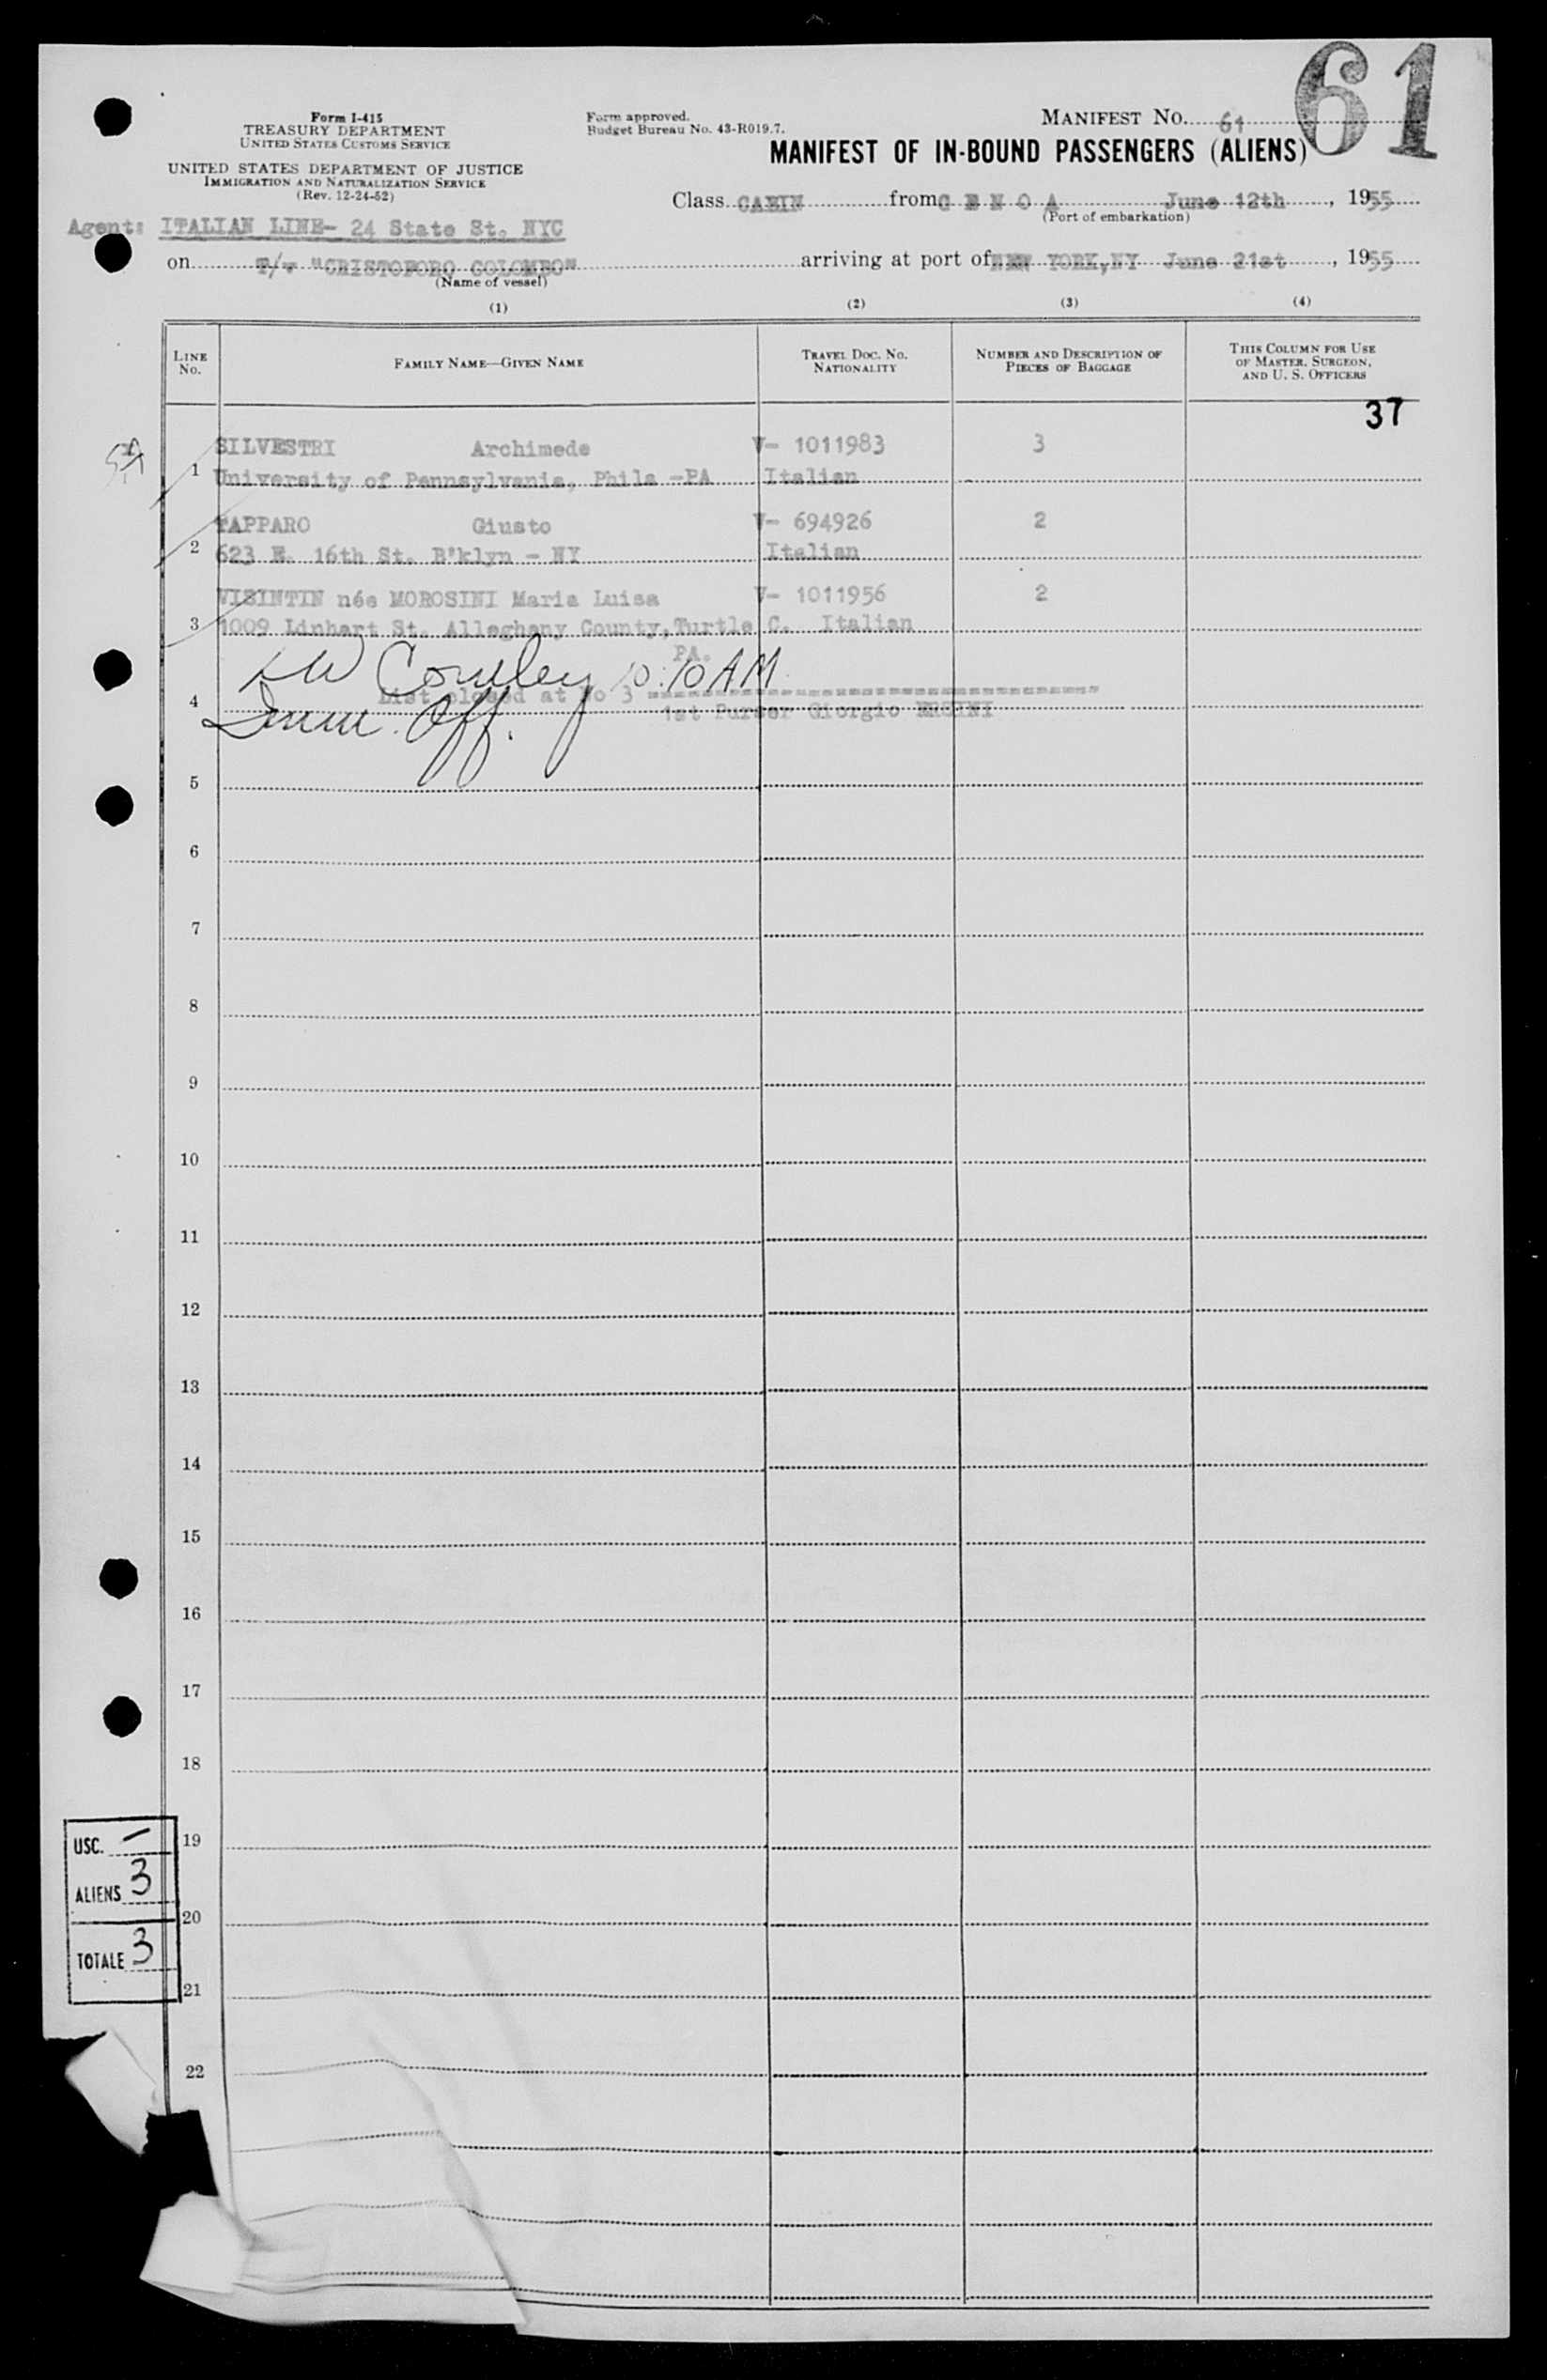 61
Form I-415
TREASURY DEPARTMENT
UNITED STATES CUSTOMS SERVICE
UNITED STATES DEPARTMENT OF JUSTICE
IMMIGRATION AND NATURALIZATION SERVICE
(Rev. 12-24-52)
Form approved.
Budget Bureau No. 43-R019.7.
MANIFEST NO. 61
MANIFEST OF IN-BOUND PASSENGERS (ALIENS)
Class CABIN from G E N O A June 12th, 1955
(Port of embarkation)
Agent: ITALIAN LINE- 24 State St. NYC
on "CRISTOFORO COLOMBO" arriving at port of NEW YORK, NY June 21st, 1955
(Name of vessel)
(1) (2) (3) (4)
LINE NO. FAMILY NAME—GIVEN NAME TRAVEL DOC. NO. NATIONALITY NUMBER AND DESCRIPTION OF PIECES OF BAGGAGE THIS COLUMN FOR USE OF MASTER, SURGEON, AND U. S. OFFICERS
37
SILVESTRI Archimede V- 1011983 3
1 University of Pennsylvania, Phila -PA Italian
TAPPARO Giusto V- 694926 2
2 623 E. 16th St. B'klyn - NY Italian
VISINTIN née MOROSINI Maria Luisa V- 1011956 2
3 1009 Linhart St. Alleghany County, Turtle C. Italian
PA.
10:10 AM
List closed at No 3
4 1st Purser Giorgio
Imm. Off.
5
6
7
8
9
10
11
12
13
14
15
16
17
18
19
20
21
22
USC. —
ALIENS 3
TOTALE 3